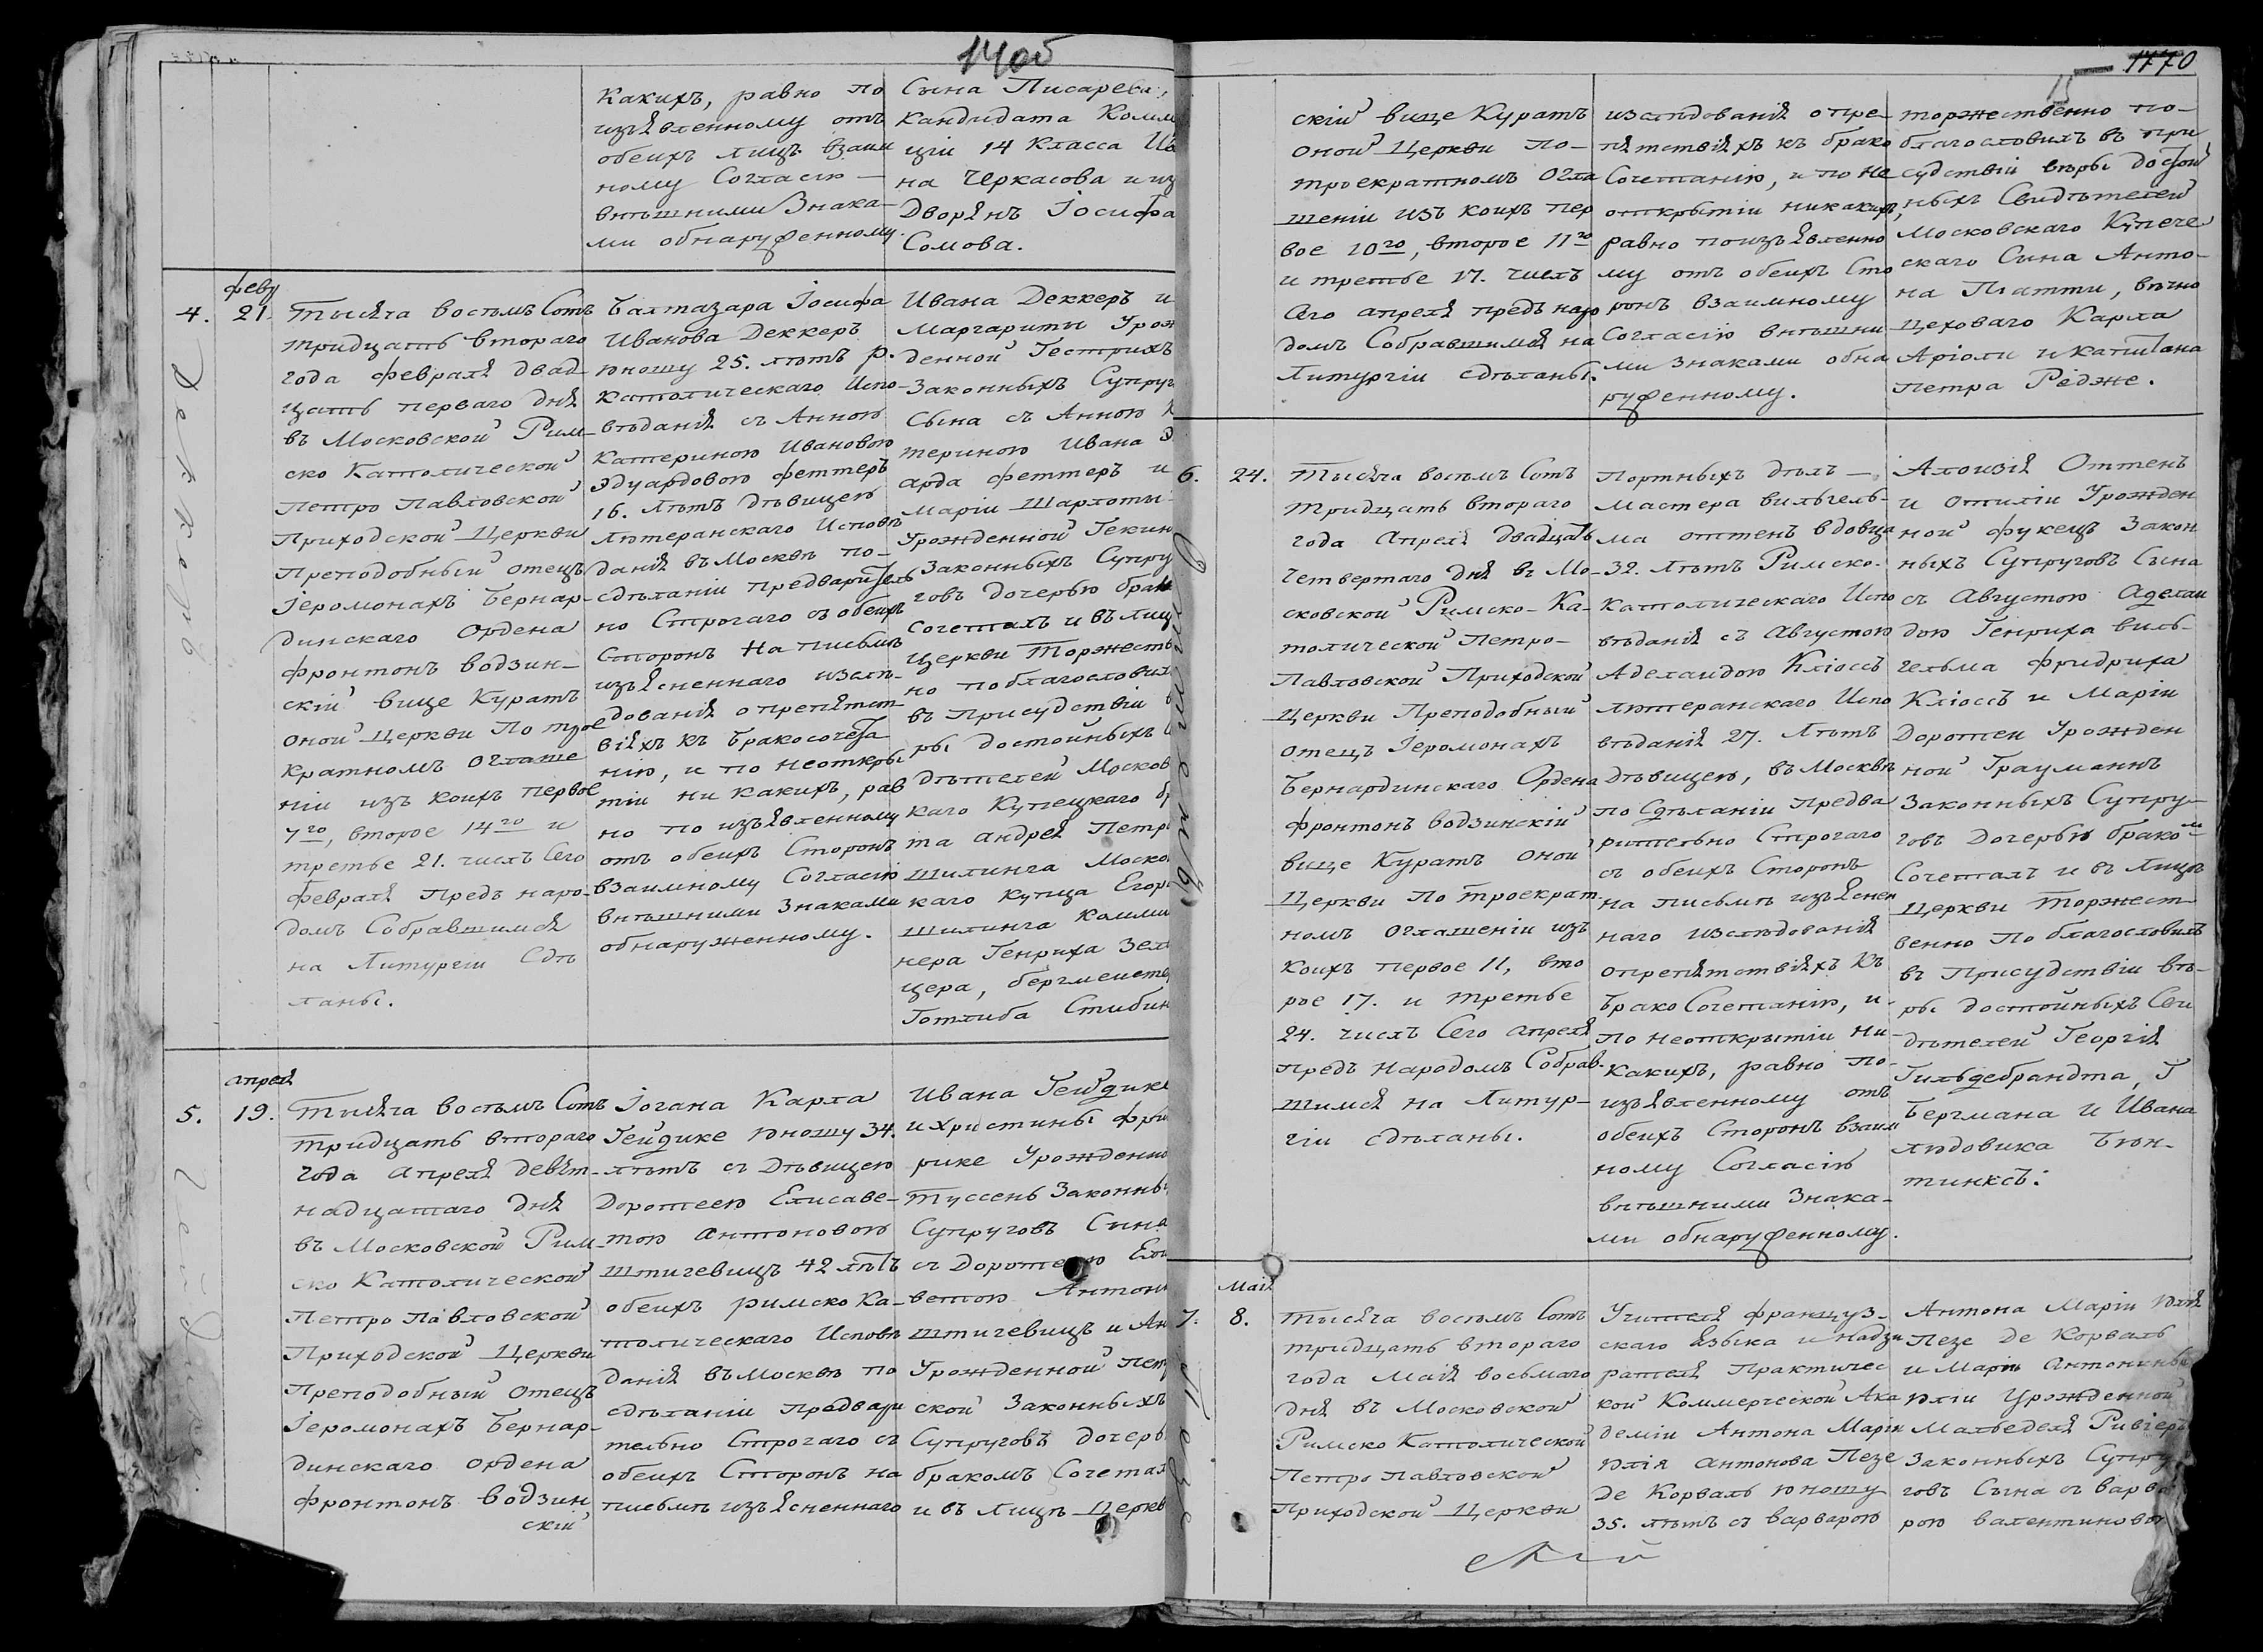 14об
какихъ, равно по
изъявленному отъ
обеихъ лицъ взаим
ному Согласію —
внѣшними Знака-
ми обнаруженному.
Сына Писарева,
Кандидата Комм
ціи 14 класса Ив
на Черкасова и из
Дворянъ Іосифа
Сомова.
4.
февр
21.
Деккеръ
Тысяча восемь Сотъ
тридцать втораго
года февраля двад-
цать перваго дня
въ Московской Рим-
ско Католической
Петро Павловской
Приходской Церкви
Преподобный отецъ
Іеромонахъ Бернар-
динскаго Ордена
фронтонъ водзин-
скій вице Куратъ
оной Церкви По трое
кратномъ Оглаше
ніи изъ коихъ первое
7го, второе 14го и
третье 21. числъ Сего
февраля Предъ наро-
домъ Собравшимся
на Литургіи Сдѣ
ланы.
Балтазара Іосифа
Иванова Деккеръ
юношу 25. лѣтъ р.
католическаго Испо-
вѣданія съ Анною
Катериною Ивановою
Эдуардовою феттеръ
16. лѣтъ дѣвицею
лютеранскаго Исповѣ
данія въ Москвѣ по-
сдѣланіи предваритель
но Строгаго съ обеихъ
Сторонъ На письмѣ
изъясненнаго изслѣ-
дованія о препятст
віяхъ къ бракосочета
нію, и по неоткры
тіи ни какихъ, рав
но по изъявленному
отъ обеихъ Сторонъ
взаимному Согласію
внѣшними Знаками
обнаруженному.
Ивана Деккеръ и
Маргариты Урож
денной Гестрихъ
Законныхъ Супруг
Сына съ Анною К
териною Ивана Э
арда феттеръ и
Маріи Шарлоты
Урожденной Гекин
Законныхъ Супру
говъ дочерью брак
сочеталъ и въ лиц
Церкви Торжеств
но поблагословил
въ Присудствіи в
ры достойныхъ С
дѣтелей Москов
каго Купецкаго бр
та Андрея Петр
Шилинга Моско
каго купца Егор
Шилинга Комми
нера Генриха Зел
цера, бергмейсте
Готлиба Стибин
5.
апреля
19.
Гейдике
Тысяча восемь Сотъ
тридцать втораго
года апреля девят-
надцатаго дня
въ Московской Рим-
ско Католической
Петро Павловской
Приходской Церкви
Преподобный отецъ
Іеромонахъ Бернар-
динскаго ордена
фронтонъ водзин
скій
Іогана Карла
Гейдике юношу 34.
лѣтъ съ Дѣвицею
Доротеею Елисаве-
тою Антоновою
Штичевицъ 42 лѣтъ
обеихъ римско Ка-
толическаго Исповѣ
данія въ Москвѣ по
сдѣланіи предвари
тельно Строгаго съ
обеихъ Сторонъ на
письмѣ изъясненнаго
Ивана Гейдике
и Христины фри
рике Урожденно
Туссень Законны
Супруговъ Сына
съ Доротеею Ели
ветою Антони
Штичевицъ и Ан
Урожденной Пет
ской Законныхъ
Супруговъ дочерь
бракомъ Сочетал
и въ лицѣ Церкв
1770
15
скій вице Куратъ
оной Церкви по-
троекратномъ Огла
шеніи изъ коихъ пер
вое 10го, второе 11го
и третье 17. числъ
Сего апреля предъ наро
домъ Собравшимся на
Литургіи сдѣланы.
изслѣдованія о пре-
пятствіяхъ къ брако
Сочетанію, и по не
открытіи никакихъ,
равно по изъявленно
му отъ обеихъ Сто
ронъ взаимному
Согласію внѣшни
ми Знаками обна
руженному.
торжественно по-
благословилъ въ при
судствіи вѣры достой
ныхъ Свидѣтелей
Московскаго Купече
скаго Сына Анто-
на Платти, вѣчно
цеховаго Карла
Аріоли и капитана
Петра Редже.
6.
24.
Оттенъ
Тысяча восемь Сотъ
Тридцать втораго
года Апреля двадцать
Четвертаго дня въ Мо-
сковской Римско-Ка-
толической Петро-
Павловской Приходской
Церкви Преподобный
отецъ Іеромонахъ
Бернардинскаго Ордена
фронтонъ водзинскій
вице Куратъ оной
Церкви По троекрат
номъ оглашеніи изъ
коихъ первое 11, вто
рое 17. и третье
24. числъ Сего апреля
предъ народомъ Собрав-
шимся на Литур-
гіи сдѣланы.
Портныхъ дѣлъ —
Мастера вильгель-
ма оттенъ вдовца
32. лѣтъ Римско-
католическаго Испо
вѣданія съ Августою
Аделаидою Кліоссъ
лютеранскаго Испо
вѣданія 27. лѣтъ
дѣвицею, въ Москвѣ
по Сдѣланіи предва
рительно Строгаго
съ обеихъ Сторонъ
на письмѣ изъяснен
наго изслѣдованія
о препятствіяхъ къ
брако Сочетанію, и
по неоткрытіи ни
какихъ, равно по-
изъявленному отъ
обеихъ Сторонъ взаим
ному Согласію
внѣшними Знака-
ми обнаруженному.
Алоизія Оттенъ
и Отиліи Урожден
ной фукецъ Закон
ныхъ Супруговъ Сына
съ Августою Аделаи
дою Генриха виль-
гельма фридриха
Кліоссъ и Маріи
Доротеи Урожден
ной Трауманнъ
Законныхъ Супру-
говъ Дочерью бракомъ
Сочеталъ и въ лицѣ
Церкви Торжест-
венно По благословилъ
въ Присудствіи вѣ-
ры достойныхъ Сви
дѣтелей Георгія
Гильдебрандта, Г
Бергмана и Ивана
людовика Бюн-
тинксъ.
7.
Маія
8.
Пезе
Тысяча восемь Сотъ
тридцать втораго
года Маія восьмаго
дня въ Московской
Римско Католической
Петро павловской
Приходской Церкви
Учителя француз-
скаго языка и надзи
рателя Практичес
кой Коммерческой Ака
деміи Антона Маріи
юлія антонова Пезе
де Корваль юношу
35. лѣтъ съ варварою
Антона Маріи юлія
Пезе де Корваль
и Маріи Антонины
юліи Урожденной
Мальведеля Ривіеръ
Законныхъ Супру
говъ Сына съ варва
рою валентиново
скій